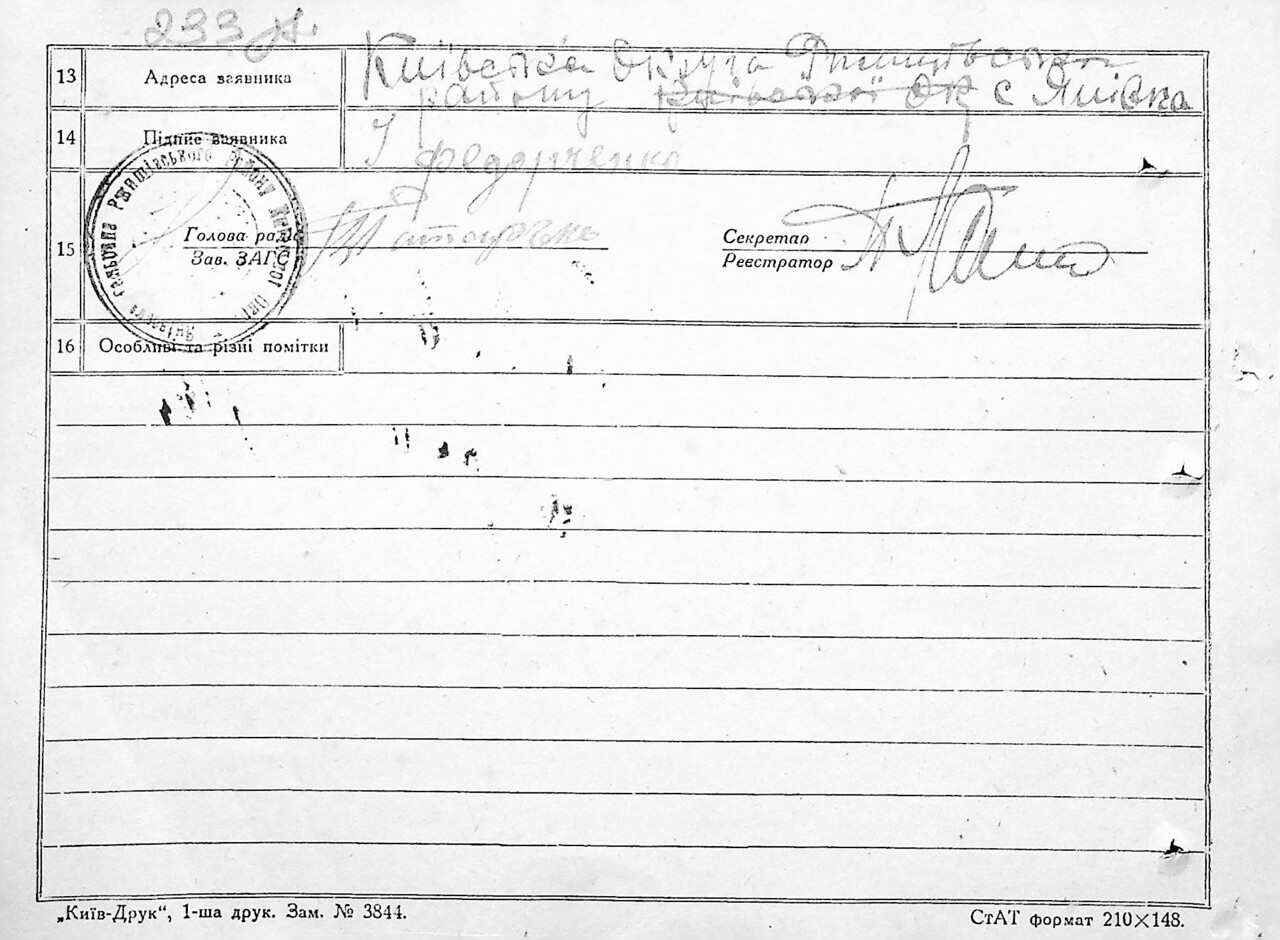 233
13 Адреса заявника Київська округа Ржищівського
району Київської ОК с Янівка
14 Підпис заявника Федорченко
15 Голова ради
Зав. ЗАГС
Секретар
Реєстратор
Ржищівського району
16 Особливі та різні помітки
„Київ-Друк“, 1-ша друк. Зам. № 3844.
СтАТ формат 210×148.